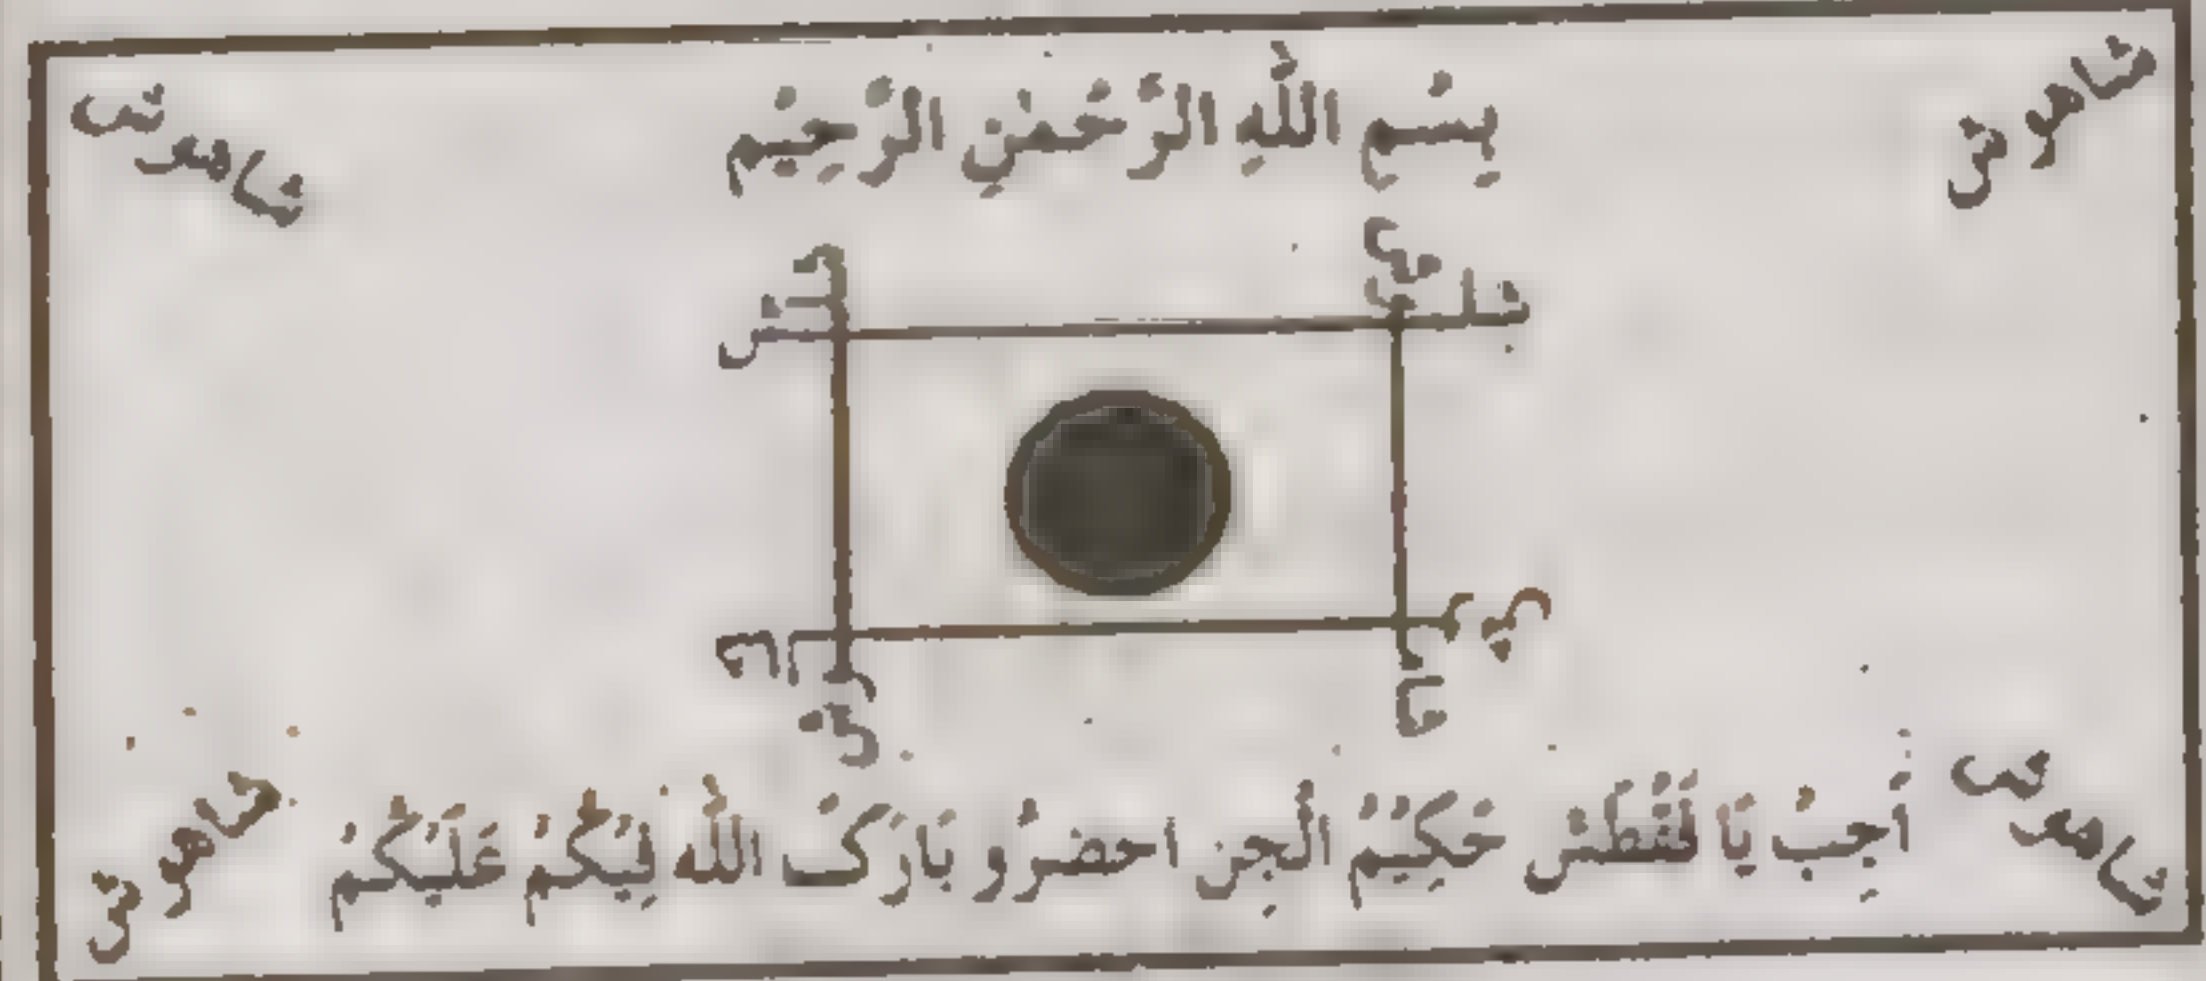 شاهوش
بِسْمِ اللّٰهِ الرَّحْمٰنِ الرَّحِيْمِ
شاهوش
شاهوش
اَجِبْ يَا حَكِيْمُ الْجِن احضرُو بَارَكَ اللّٰه فِيْكُمْ عَلَيْكُمْ
شاهوش